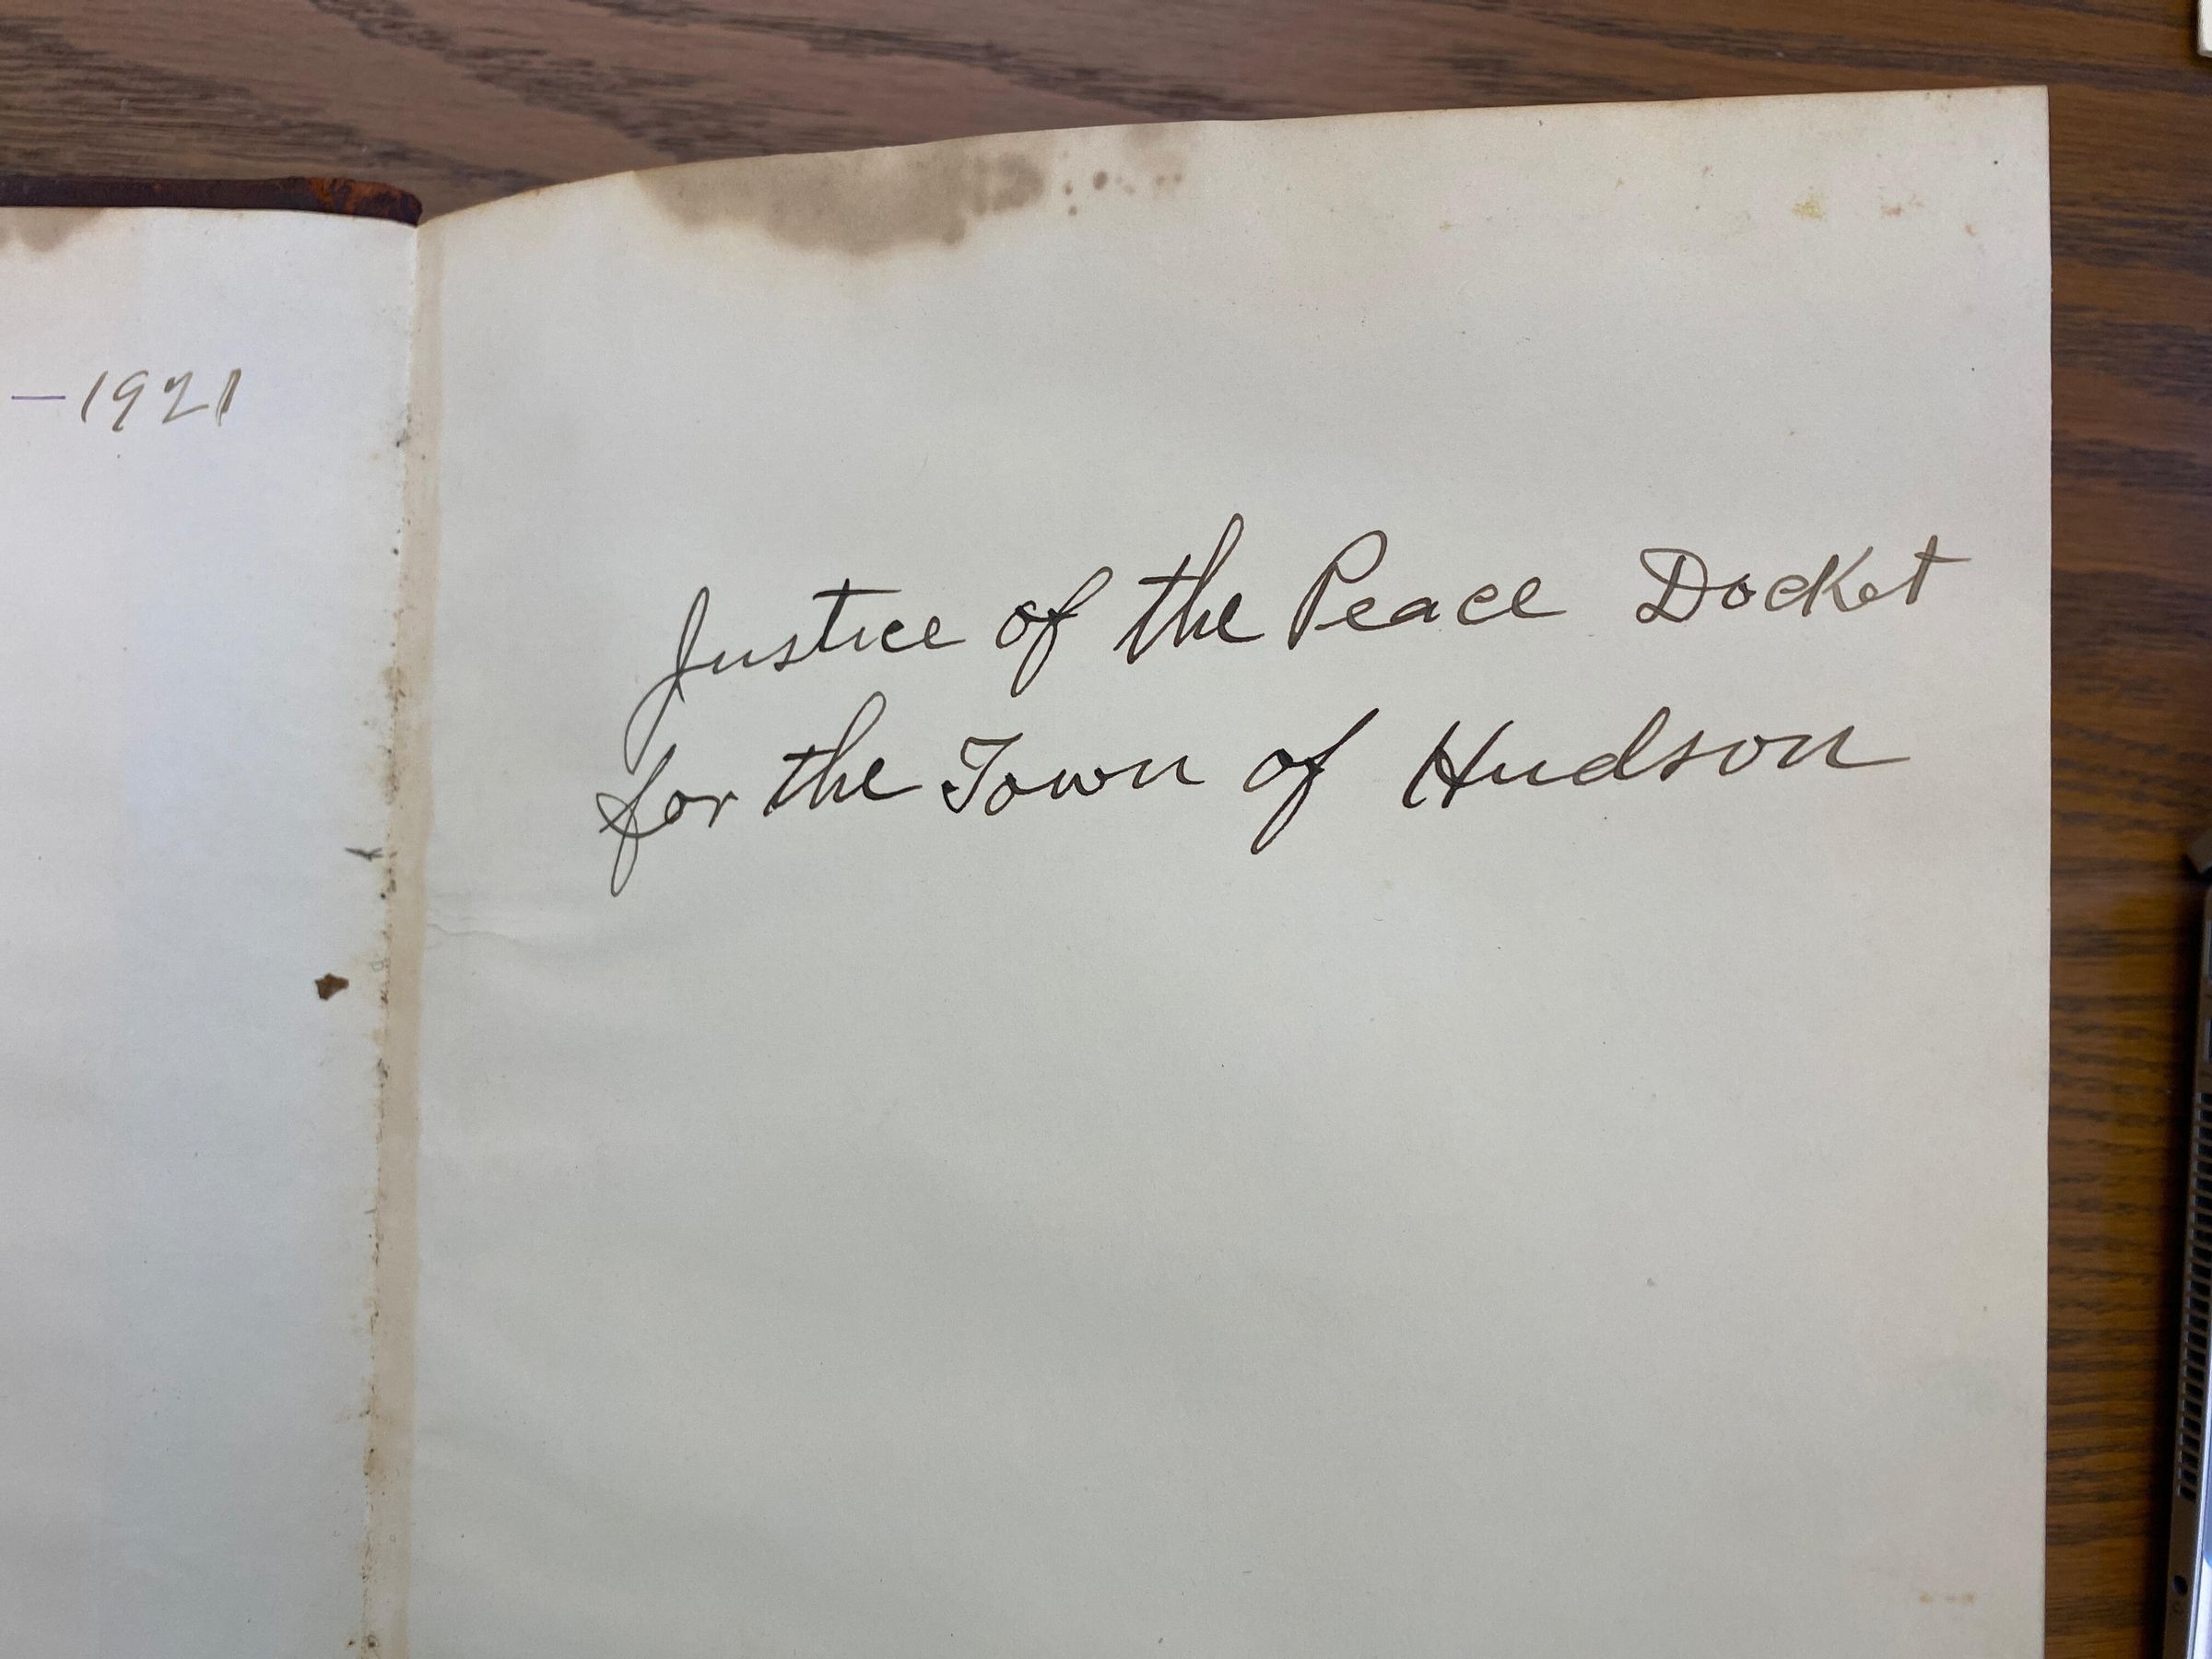 —1921
Justice of the Peace Docket
for the Town of Hudson